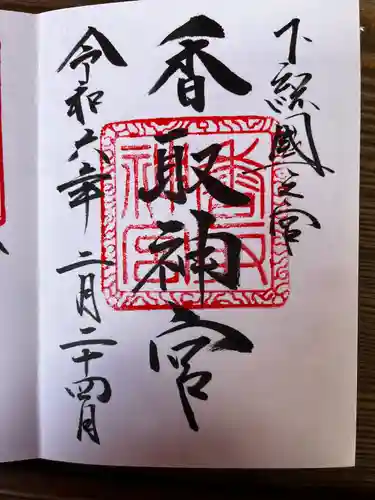 下総國一之宮
香取神宮
令和六年二月二十四日
香取神宮